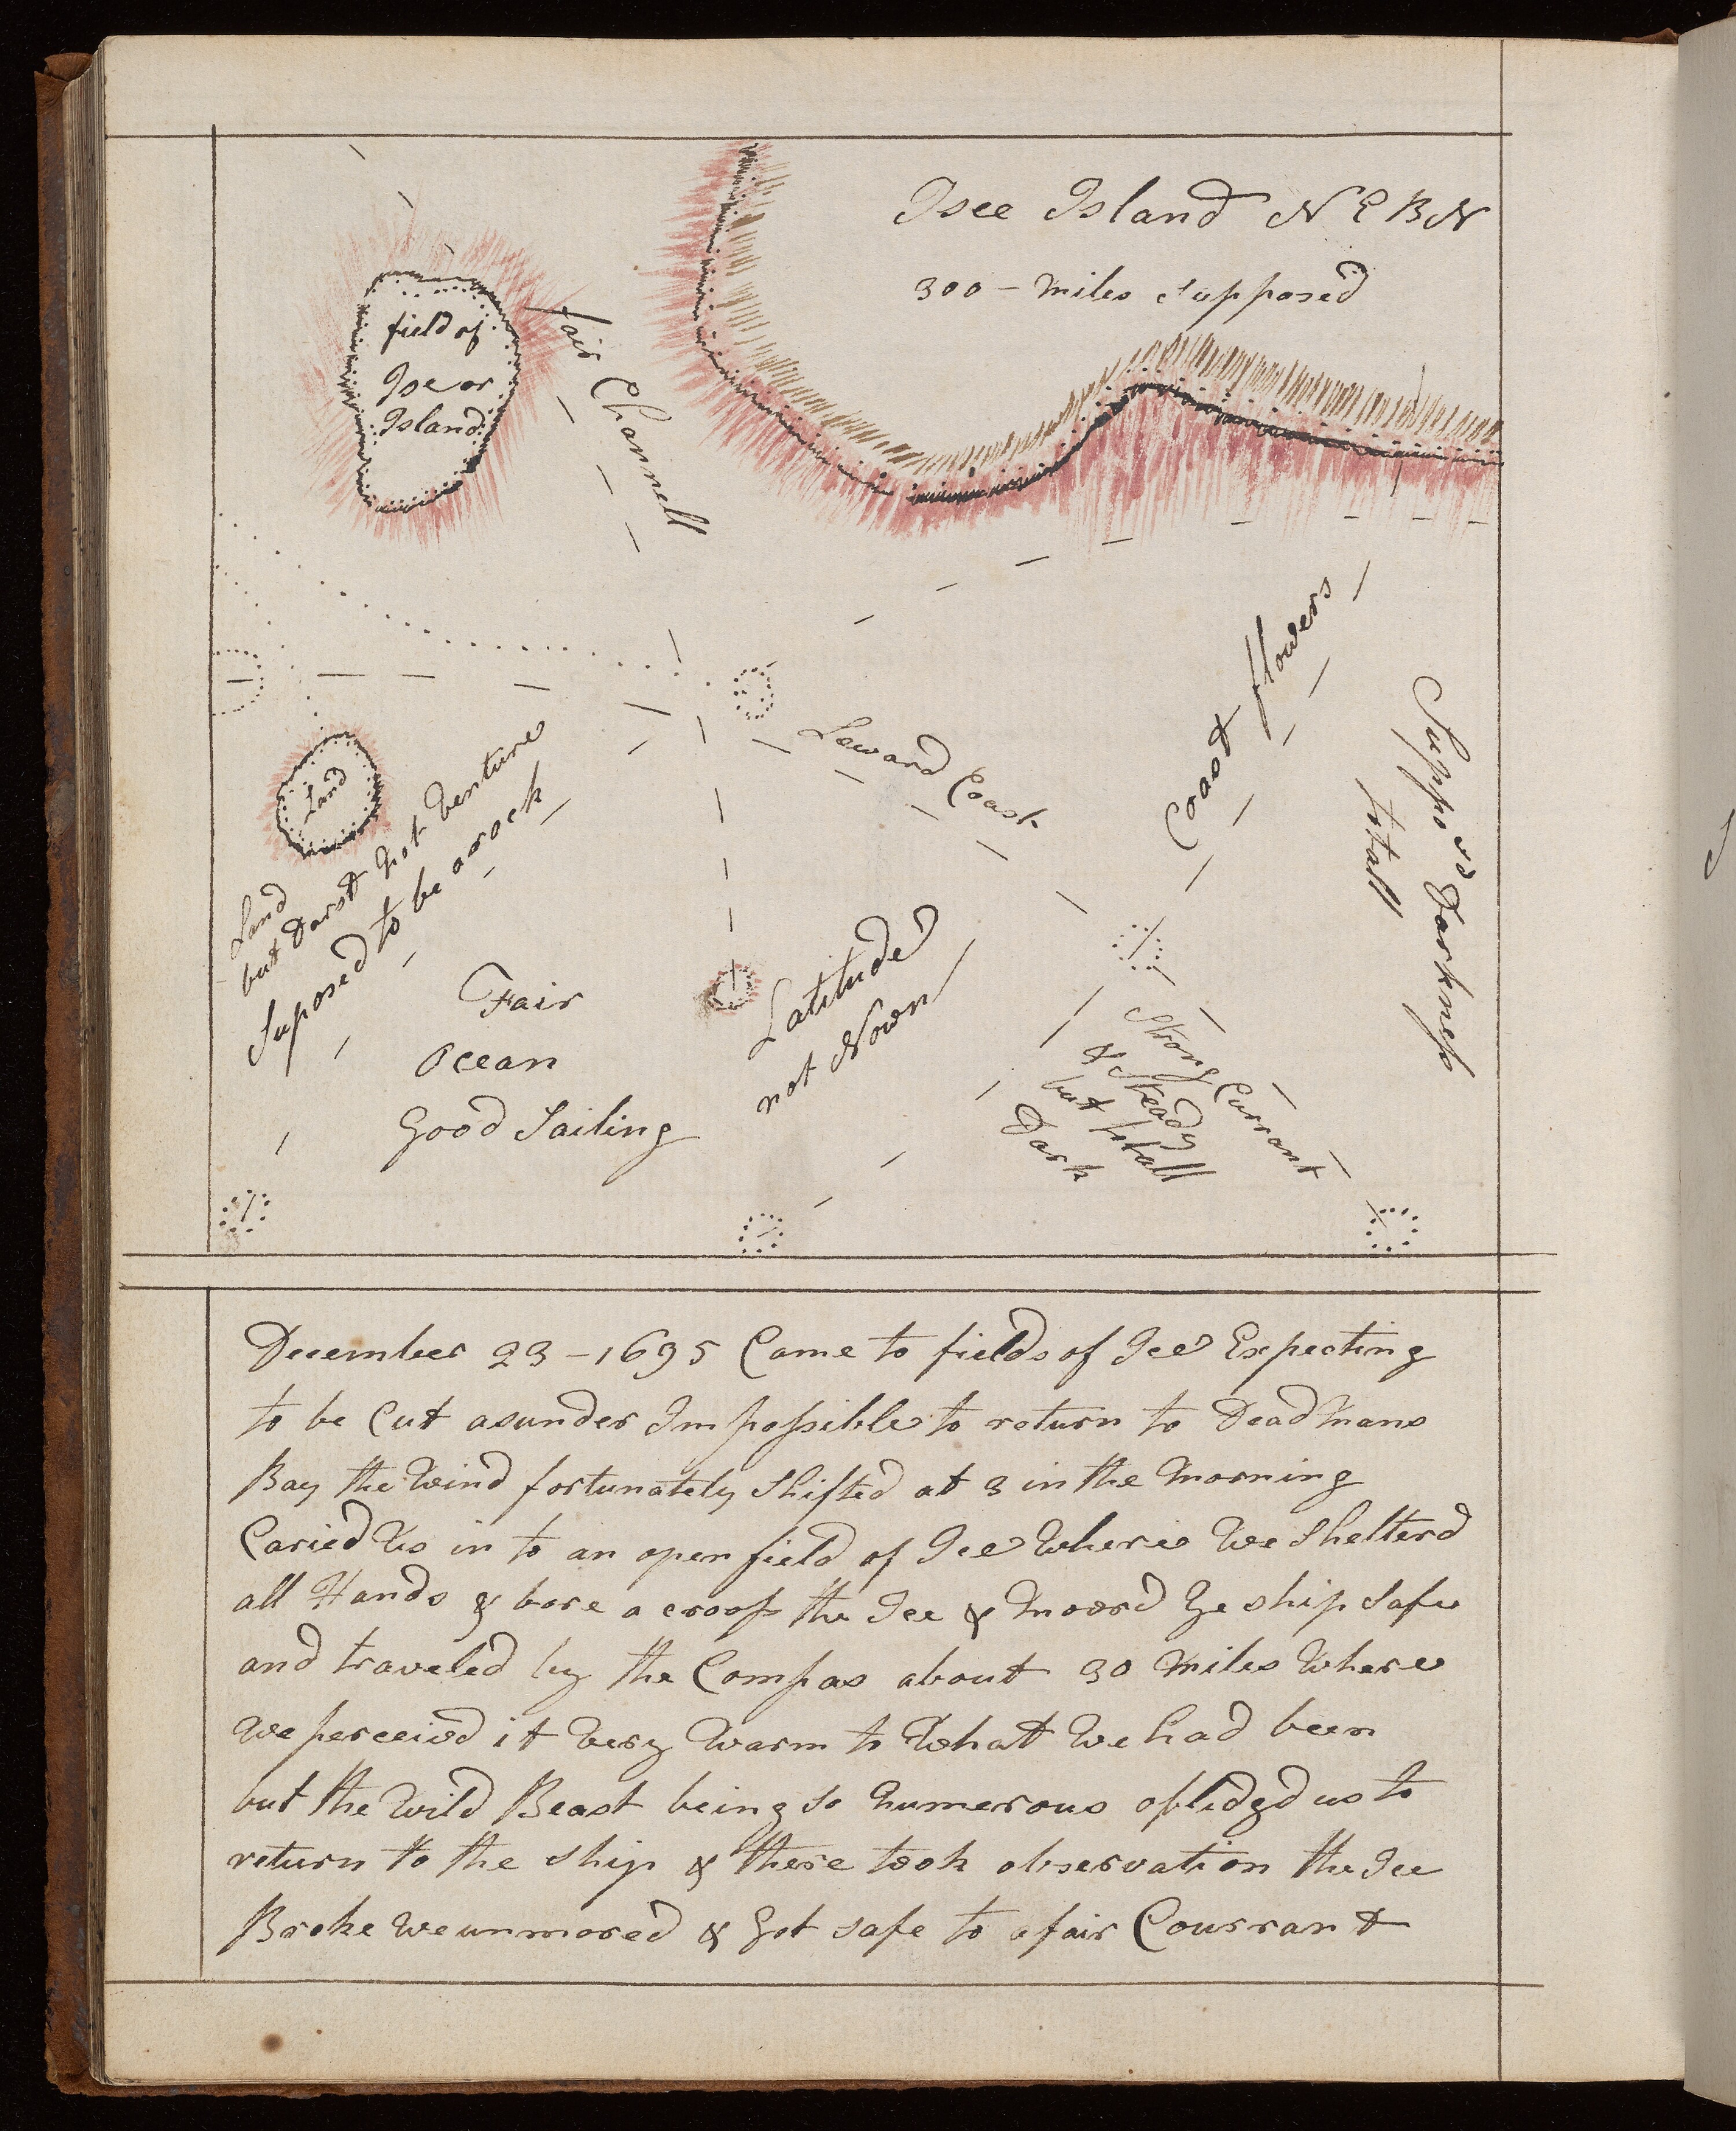 Isee Island N E B N
300 - Miles Supposed
field of
Ise or
Island
fair Channell
Land
Land
but Darst Not Venture
Suposed to be a rock
Leward Coast
Coast flowers
Suppos'd Darkness
totall
Fair
Ocean
Good Sailing
Latitude
not Nown
Strong Currant
& Steady
but totall
Dark
December 23 - 1695 Came to fields of Ice Expecting
to be Cut asunder Impossible to return to Dead Mans
Bay the Wind fortunately Shifted at 3 in the Morning
Caried Us in to an open field of Ice Where We Shelterd
all Hands & bore a cross the Ice & Moord Ye ship Safe
and traveled by the Compas about 30 Miles Where
We perceivd it Very Warm to What We had been
but the Wild Beast being so Numerous oblidgd us to
return to the Ship & there took observation the Ice
Broke we unmored & Got safe to a fair Courrant